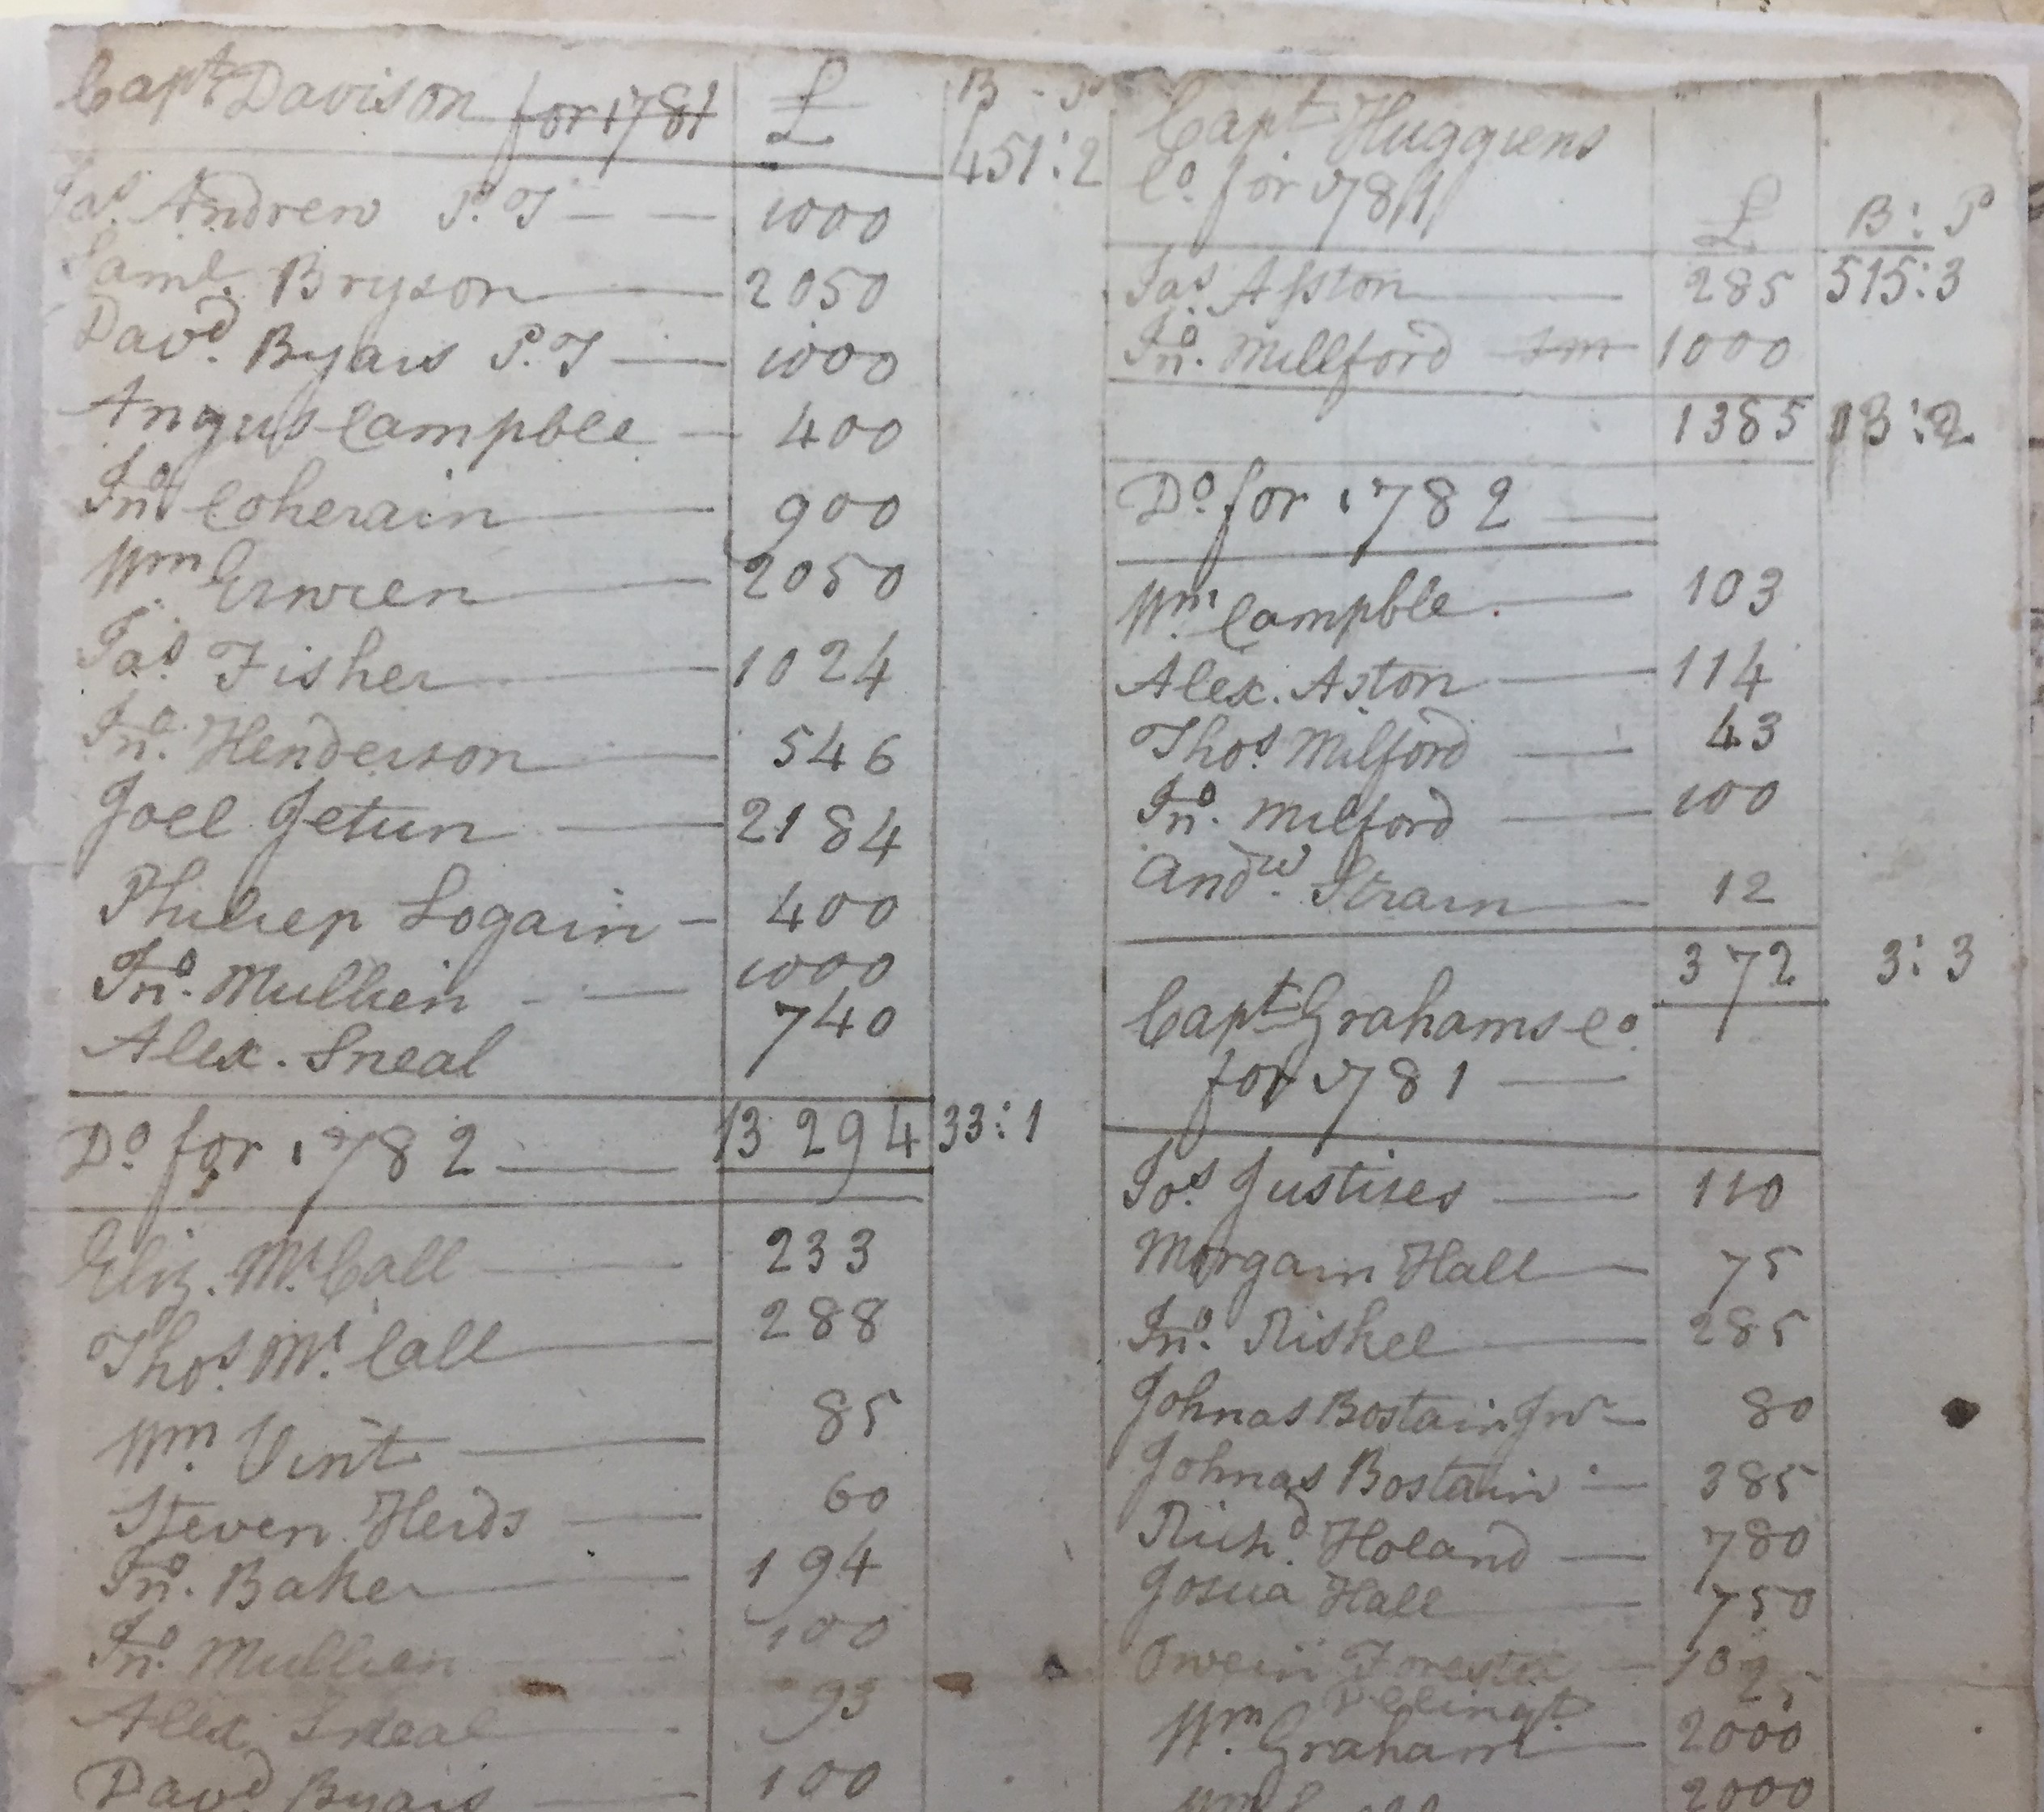 Capt Davison for 1781 £ B - P
451:2
Jas. Andrew P.T — — 1000
Saml. Bryson — 2050
Davd. Byars P.T — 1000
Angus Campble — 400
Jno. Coherain — 900
Wm. Erwien — 2050
Jas. Fisher — 1024
Jno. Henderson — 546
Joel Jetun — 2184
Philiep Logain — 400
Jno. Mullien — 1000
Alex. Sneal 740
13294 33:1
Do. for 1782 —
Eliz. Mc.Call — 233
Thos. Mc.Call — 288
Wm. Vint — 85
Steven Heids — 60
Jno. Baker — 194
Jno. Mullien — 100
Alex Sneal — 93
Davd Byars — 100
Capt Huggiens
Co. for 1781 £ B:P
Jas. Asston — 285 515:3
Jno. Millford 1000
1385 13:2
Do. for 1782 —
Wm. Campble. — 103
Alex. Aston — 114
Thos. Milford — 43
Jno. Milford — 100
Andw. Strain — 12
372 3:3
Capt Grahams Co.
for 1781 —
Jos. Justises — 110
Morgain Hall — 75
Jno. Rishel — 285
Johnas Bostain Jnr — 80
Johnas Bostain — 385
Richd. Holand — 780
Josua Hall — 750
Owein Forester — 1025
Wm. Graham — 2000
2000